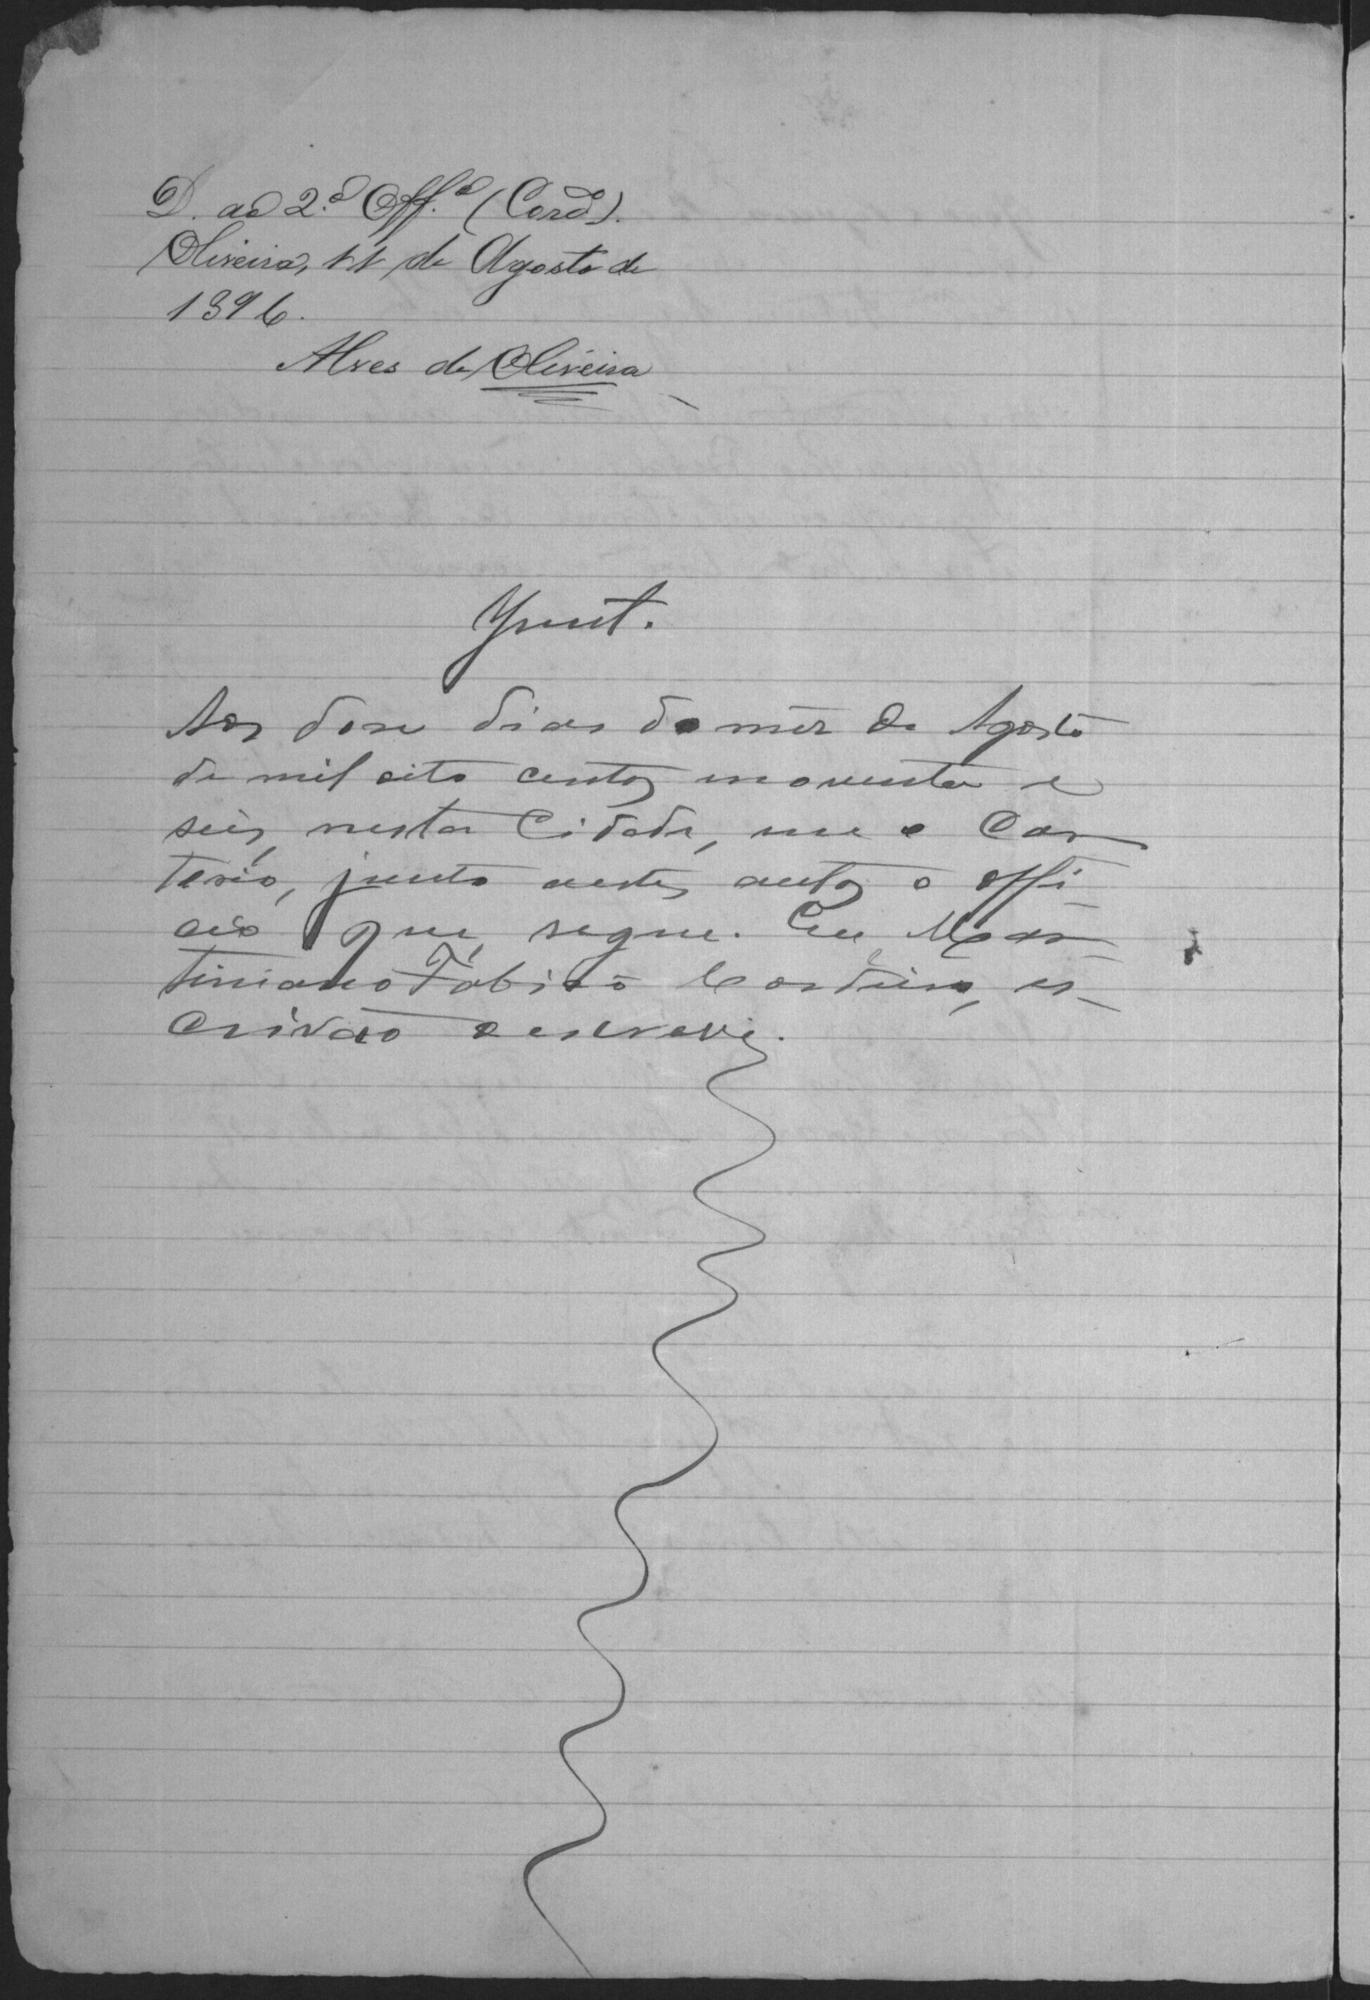 D. ao 2.º Off.º (Cord.º).
Oliveira, 11 de Agosto de
1896.
Alves de Oliveira
Junt.
Aos dose dias do mez de Agosto
de mil oito centos e noventa e
seis, nesta Cidade, em o Car
torio, junto a estes autos o offi
cio que segue. Eu Mar
tiniano Fabião Cordeiro, es
crivão o escrevi.